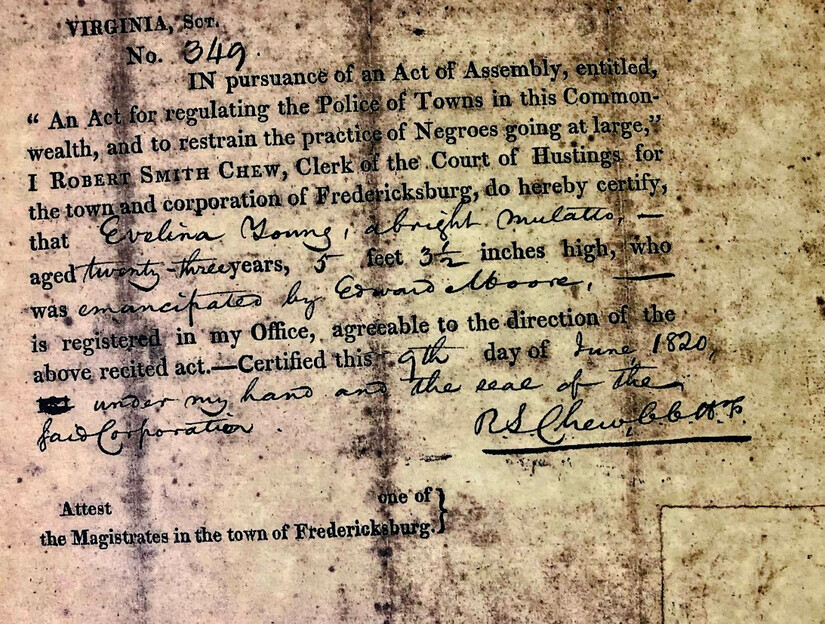 VIRGINIA, SCT.
No. 349.
IN pursuance of an Act of Assembly, entitled,
“ An Act for regulating the Police of Towns in this Common-
wealth, and to restrain the practice of Negroes going at large,”
I ROBERT SMITH CHEW, Clerk of the Court of Hustings for
the town and corporation of Fredericksburg, do hereby certify,
that Evelina Young, a bright mulatto, —
aged twenty-three years, 5 feet 3½ inches high, who
was emancipated by Edward Moore, —
is registered in my Office, agreeable to the direction of the
above recited act.—Certified this 9th day of June, 1820,
under my hand and the seal of the
said Corporation.
R S Chew,
Attest one of }
the Magistrates in the town of Fredericksburg.